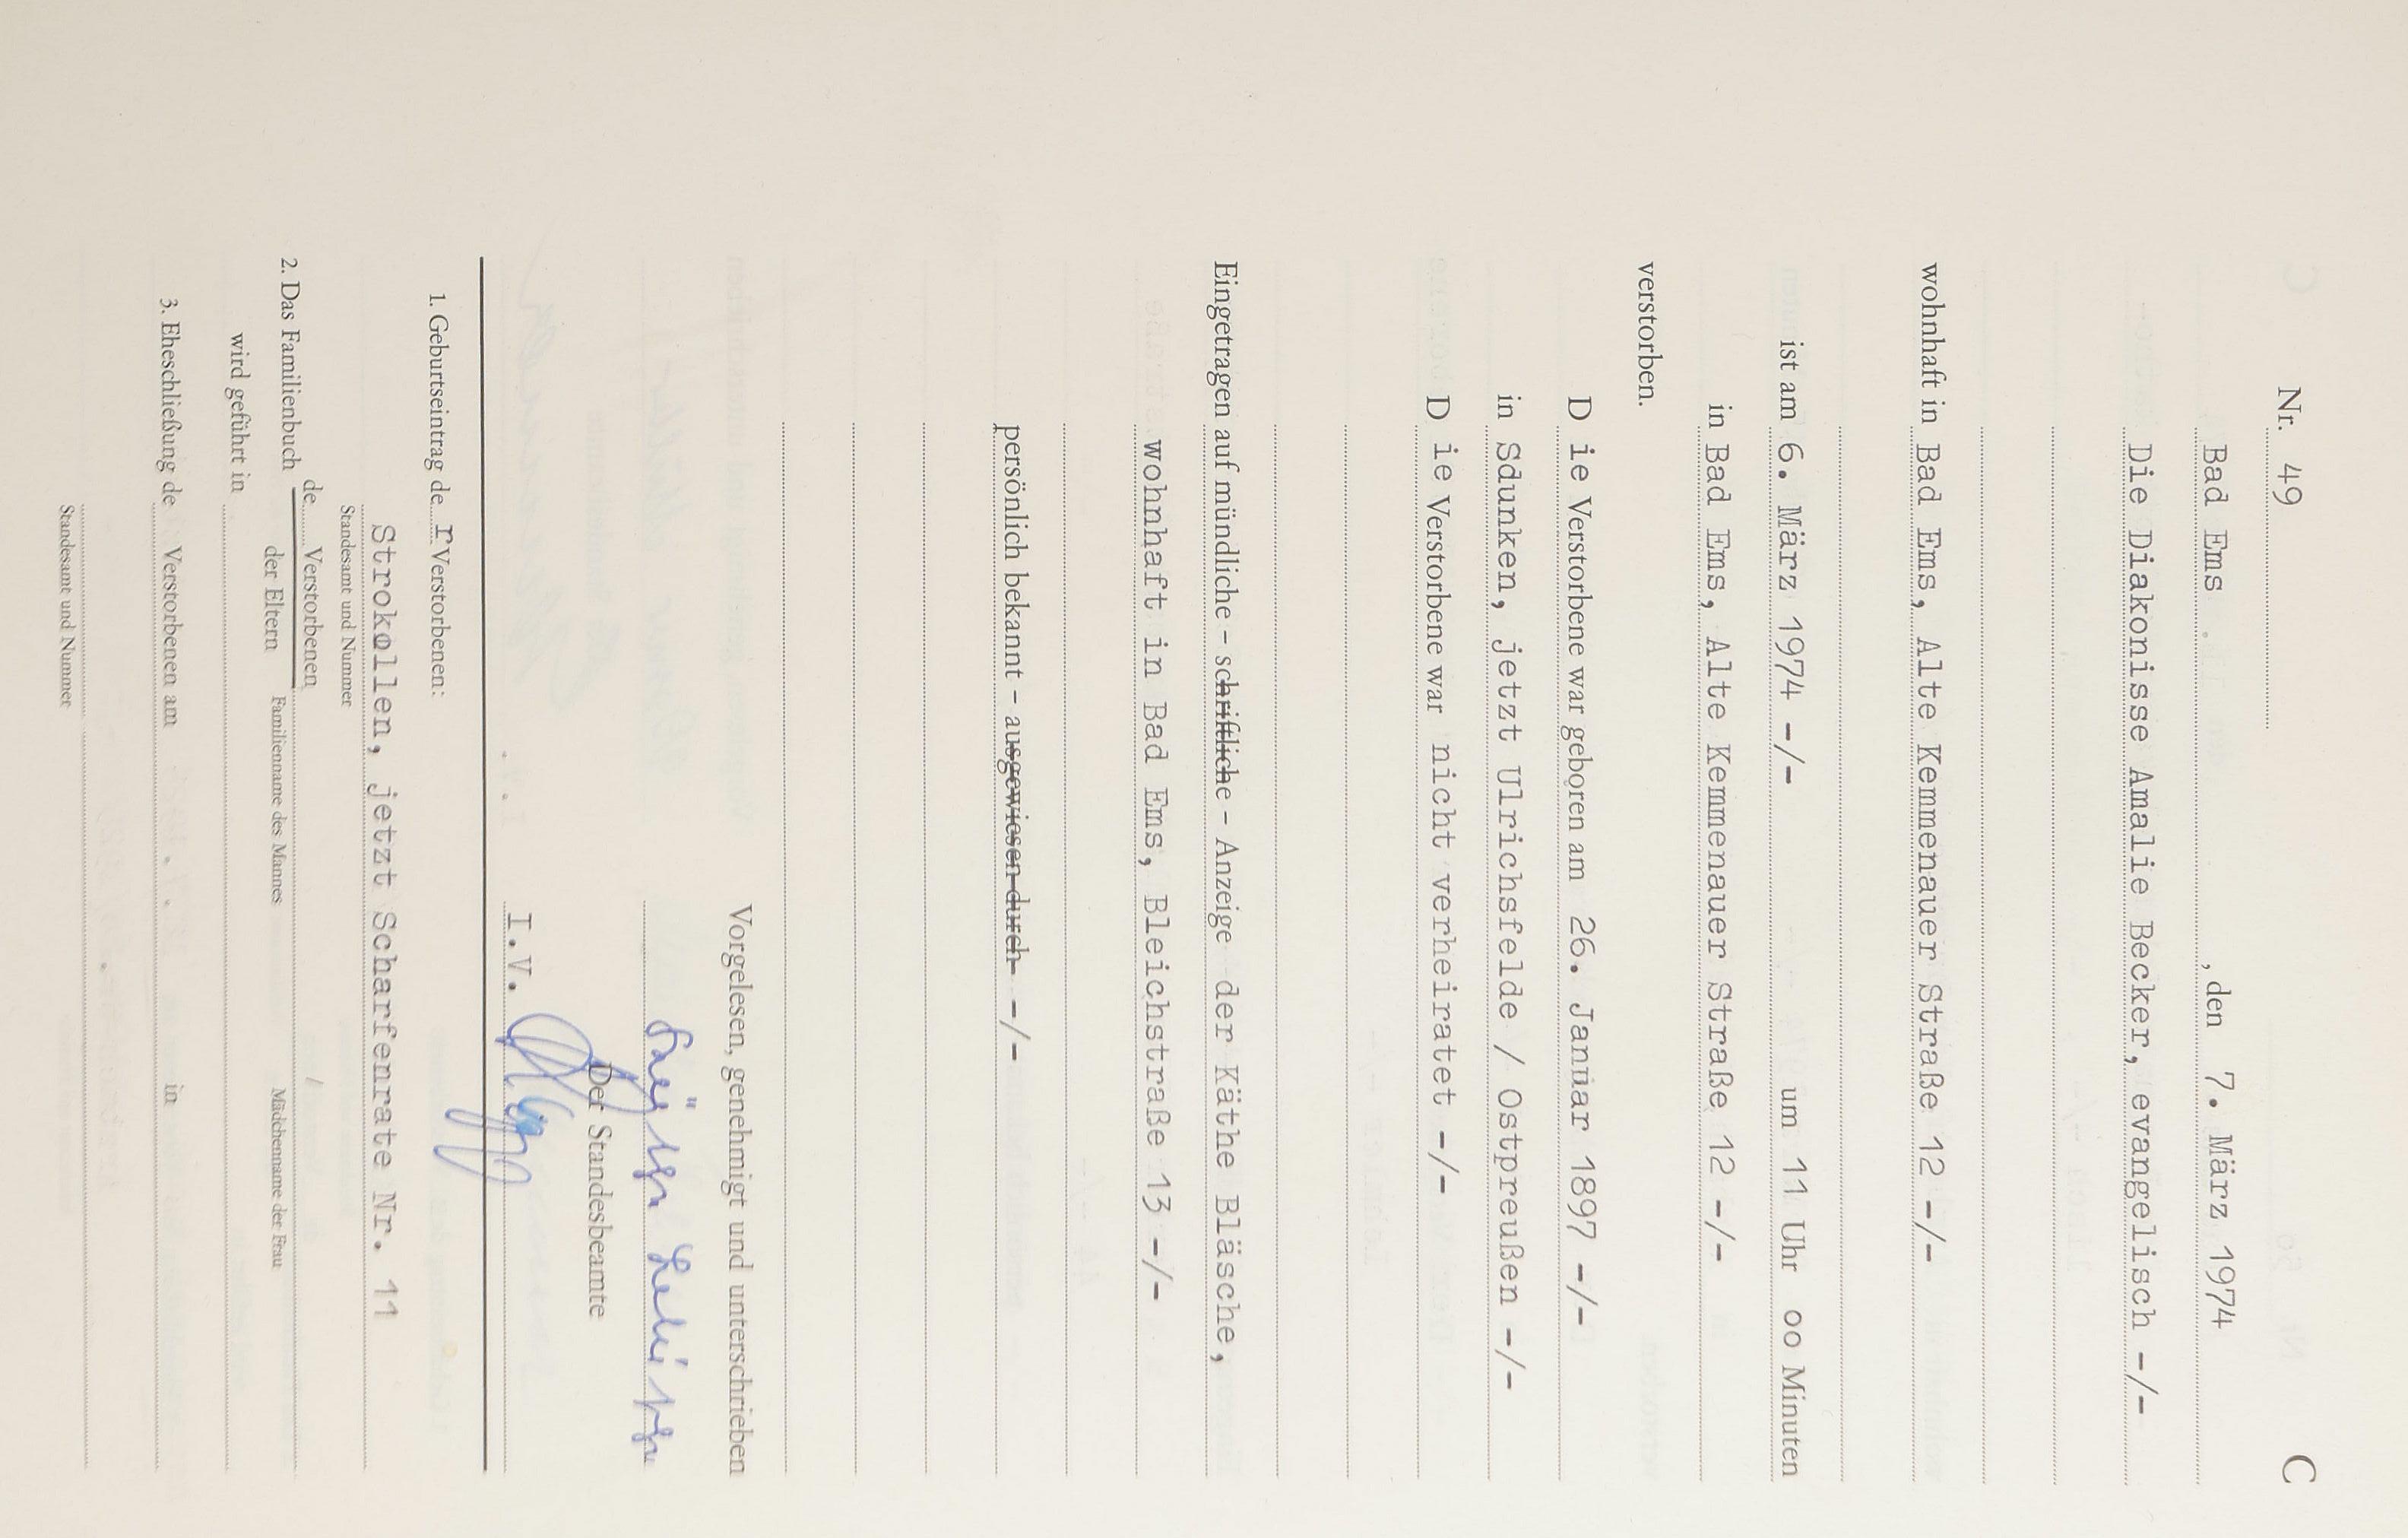 Nr. 49 C
Bad Ems , den 7. März 1974
Die Diakonisse Amalie Becker, evangelisch -/-
wohnhaft in Bad Ems, Alte Kemmenauer Straße 12 -/-
ist am 6. März 1974 -/- um 11 Uhr oo Minuten
in Bad Ems, Alte Kemmenauer Straße 12 -/-
verstorben.
D ie Verstorbene war geboren am 26. Jannar 1897 -/-
in Sdunken, jetzt Ulrichsfelde / Ostpreußen -/-
D ie Verstorbene war nicht verheiratet -/-
Eingetragen auf mündliche - schriftliche - Anzeige der Käthe Bläsche,
wohnhaft in Bad Ems, Bleichstraße 13 -/-
persönlich bekannt - ausgewiesen durch -/-
Vorgelesen, genehmigt und unterschrieben
Der Standesbeamte
I.V.
1. Geburtseintrag de r Verstorbenen:
Strokollen, jetzt Scharfenrate Nr. 11
Standesamt und Nummer
de Verstorbenen
2. Das Familienbuch
der Eltern Familienname des Mannes Mädchenname der Frau
wird geführt in
3. Eheschließung de Verstorbenen am in
Standesamt und Nummer